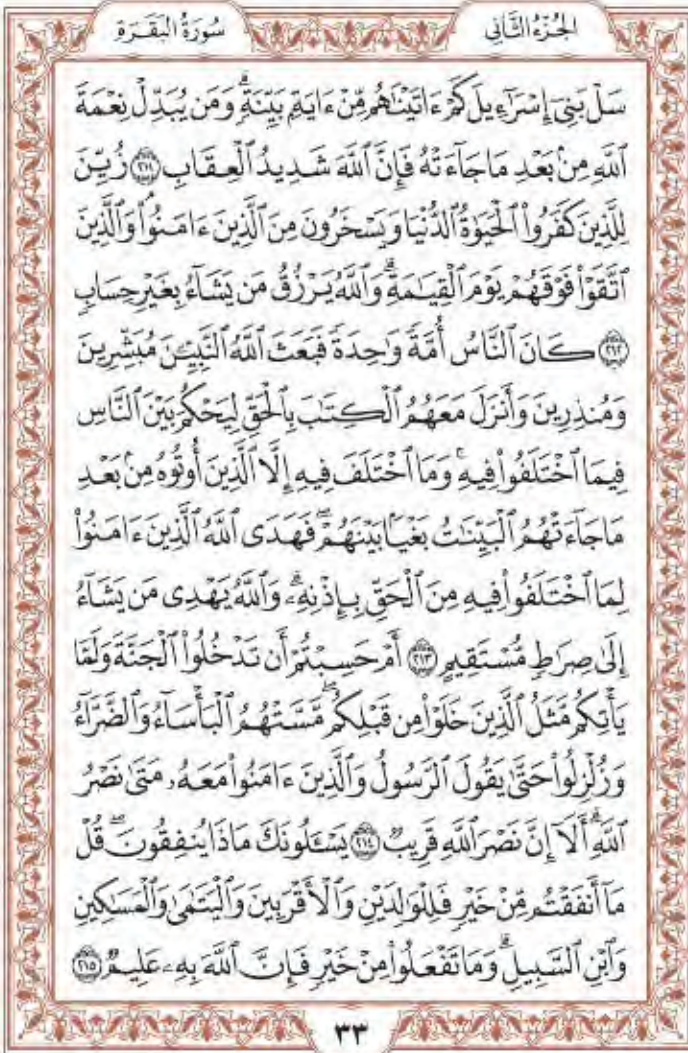 الجُزْءُ الثَّانِي
سُورَةُ الْبَقَرَةِ
سَلْ بَنِىٓ إِسْرَٰٓءِيلَ كَمْ ءَاتَيْنَٰهُم مِّنْ ءَايَةِۭ بَيِّنَةٍۗ وَمَن يُبَدِّلْ نِعْمَةَ
ٱللَّهِ مِنۢ بَعْدِ مَا جَآءَتْهُ فَإِنَّ ٱللَّهَ شَدِيدُ ٱلْعِقَابِ ۝٢١١ زُيِّنَ
لِلَّذِينَ كَفَرُوا۟ ٱلْحَيَوٰةُ ٱلدُّنْيَا وَيَسْخَرُونَ مِنَ ٱلَّذِينَ ءَامَنُوا۟ۘ وَٱلَّذِينَ
ٱتَّقَوْا۟ فَوْقَهُمْ يَوْمَ ٱلْقِيَٰمَةِۗ وَٱللَّهُ يَرْزُقُ مَن يَشَآءُ بِغَيْرِ حِسَابٍ
۝٢١٢ كَانَ ٱلنَّاسُ أُمَّةً وَٰحِدَةً فَبَعَثَ ٱللَّهُ ٱلنَّبِيِّـۧنَ مُبَشِّرِينَ
وَمُنذِرِينَ وَأَنزَلَ مَعَهُمُ ٱلْكِتَٰبَ بِٱلْحَقِّ لِيَحْكُمَ بَيْنَ ٱلنَّاسِ
فِيمَا ٱخْتَلَفُوا۟ فِيهِۚ وَمَا ٱخْتَلَفَ فِيهِ إِلَّا ٱلَّذِينَ أُوتُوهُ مِنۢ بَعْدِ
مَا جَآءَتْهُمُ ٱلْبَيِّنَٰتُ بَغْيًۢا بَيْنَهُمْۖ فَهَدَى ٱللَّهُ ٱلَّذِينَ ءَامَنُوا۟
لِمَا ٱخْتَلَفُوا۟ فِيهِ مِنَ ٱلْحَقِّ بِإِذْنِهِۦۗ وَٱللَّهُ يَهْدِى مَن يَشَآءُ
إِلَىٰ صِرَٰطٍ مُّسْتَقِيمٍ ۝٢١٣ أَمْ حَسِبْتُمْ أَن تَدْخُلُوا۟ ٱلْجَنَّةَ وَلَمَّا
يَأْتِكُم مَّثَلُ ٱلَّذِينَ خَلَوْا۟ مِن قَبْلِكُمۖ مَّسَّتْهُمُ ٱلْبَأْسَآءُ وَٱلضَّرَّآءُ
وَزُلْزِلُوا۟ حَتَّىٰ يَقُولَ ٱلرَّسُولُ وَٱلَّذِينَ ءَامَنُوا۟ مَعَهُۥ مَتَىٰ نَصْرُ
ٱللَّهِۗ أَلَآ إِنَّ نَصْرَ ٱللَّهِ قَرِيبٌ ۝٢١٤ يَسْـَٔلُونَكَ مَاذَا يُنفِقُونَۖ قُلْ
مَآ أَنفَقْتُم مِّنْ خَيْرٍ فَلِلْوَٰلِدَيْنِ وَٱلْأَقْرَبِينَ وَٱلْيَتَٰمَىٰ وَٱلْمَسَٰكِينِ
وَٱبْنِ ٱلسَّبِيلِۗ وَمَا تَفْعَلُوا۟ مِنْ خَيْرٍ فَإِنَّ ٱللَّهَ بِهِۦ عَلِيمٌ ۝٢١٥
٣٣